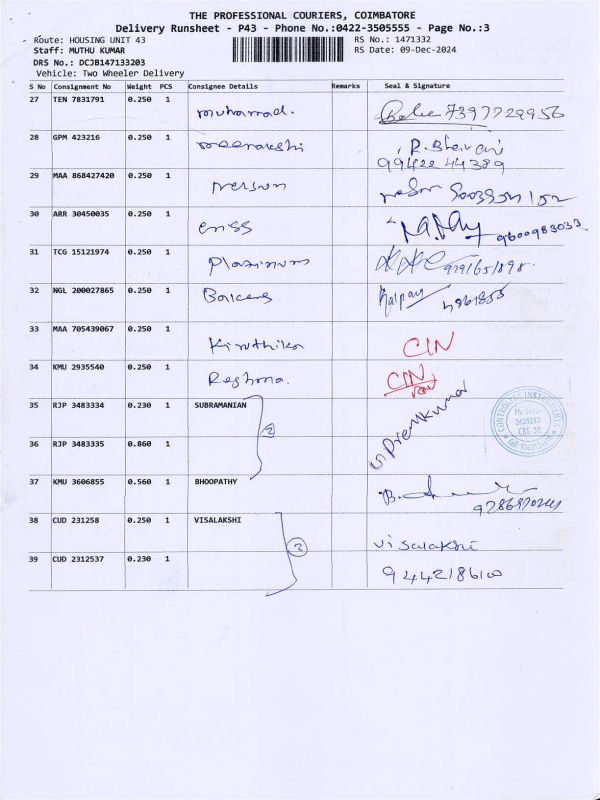 THE PROFESSIONAL COURIERS, COIMBATORE
Delivery Runsheet - P43 - Phone No.:0422-3505555 - Page No.:3
Route: HOUSING UNIT 43 RS No.: 1471332
Staff: MUTHU KUMAR RS Date: 09-Dec-2024
DRS No.: DCJB147133203
Vehicle: Two Wheeler Delivery
S No Consignment No Weight PCS Consignee Details Remarks Seal & Signature
27 TEN 7831791 0.250 1 muhamad. 7397729956
28 GPM 423216 0.250 1 meenakshi R. Bhavani
99422 44389
29 MAA 868427420 0.250 1
30 ARR 30450035 0.250 1 9600983033
31 TCG 15121974 0.250 1
32 NGL 200027865 0.250 1 Kalpana
33 MAA 705439067 0.250 1 Kiruthika CIN
34 KMU 2935540 0.250 1 Reshma. CIN
35 RJP 3483334 0.230 1 SUBRAMANIAN 2 Premkumar
36 RJP 3483335 0.860 1
37 KMU 3606855 0.560 1 BHOOPATHY
38 CUD 231258 0.250 1 VISALAKSHI 2 visalakshi
39 CUD 2312537 0.230 1 9442186100